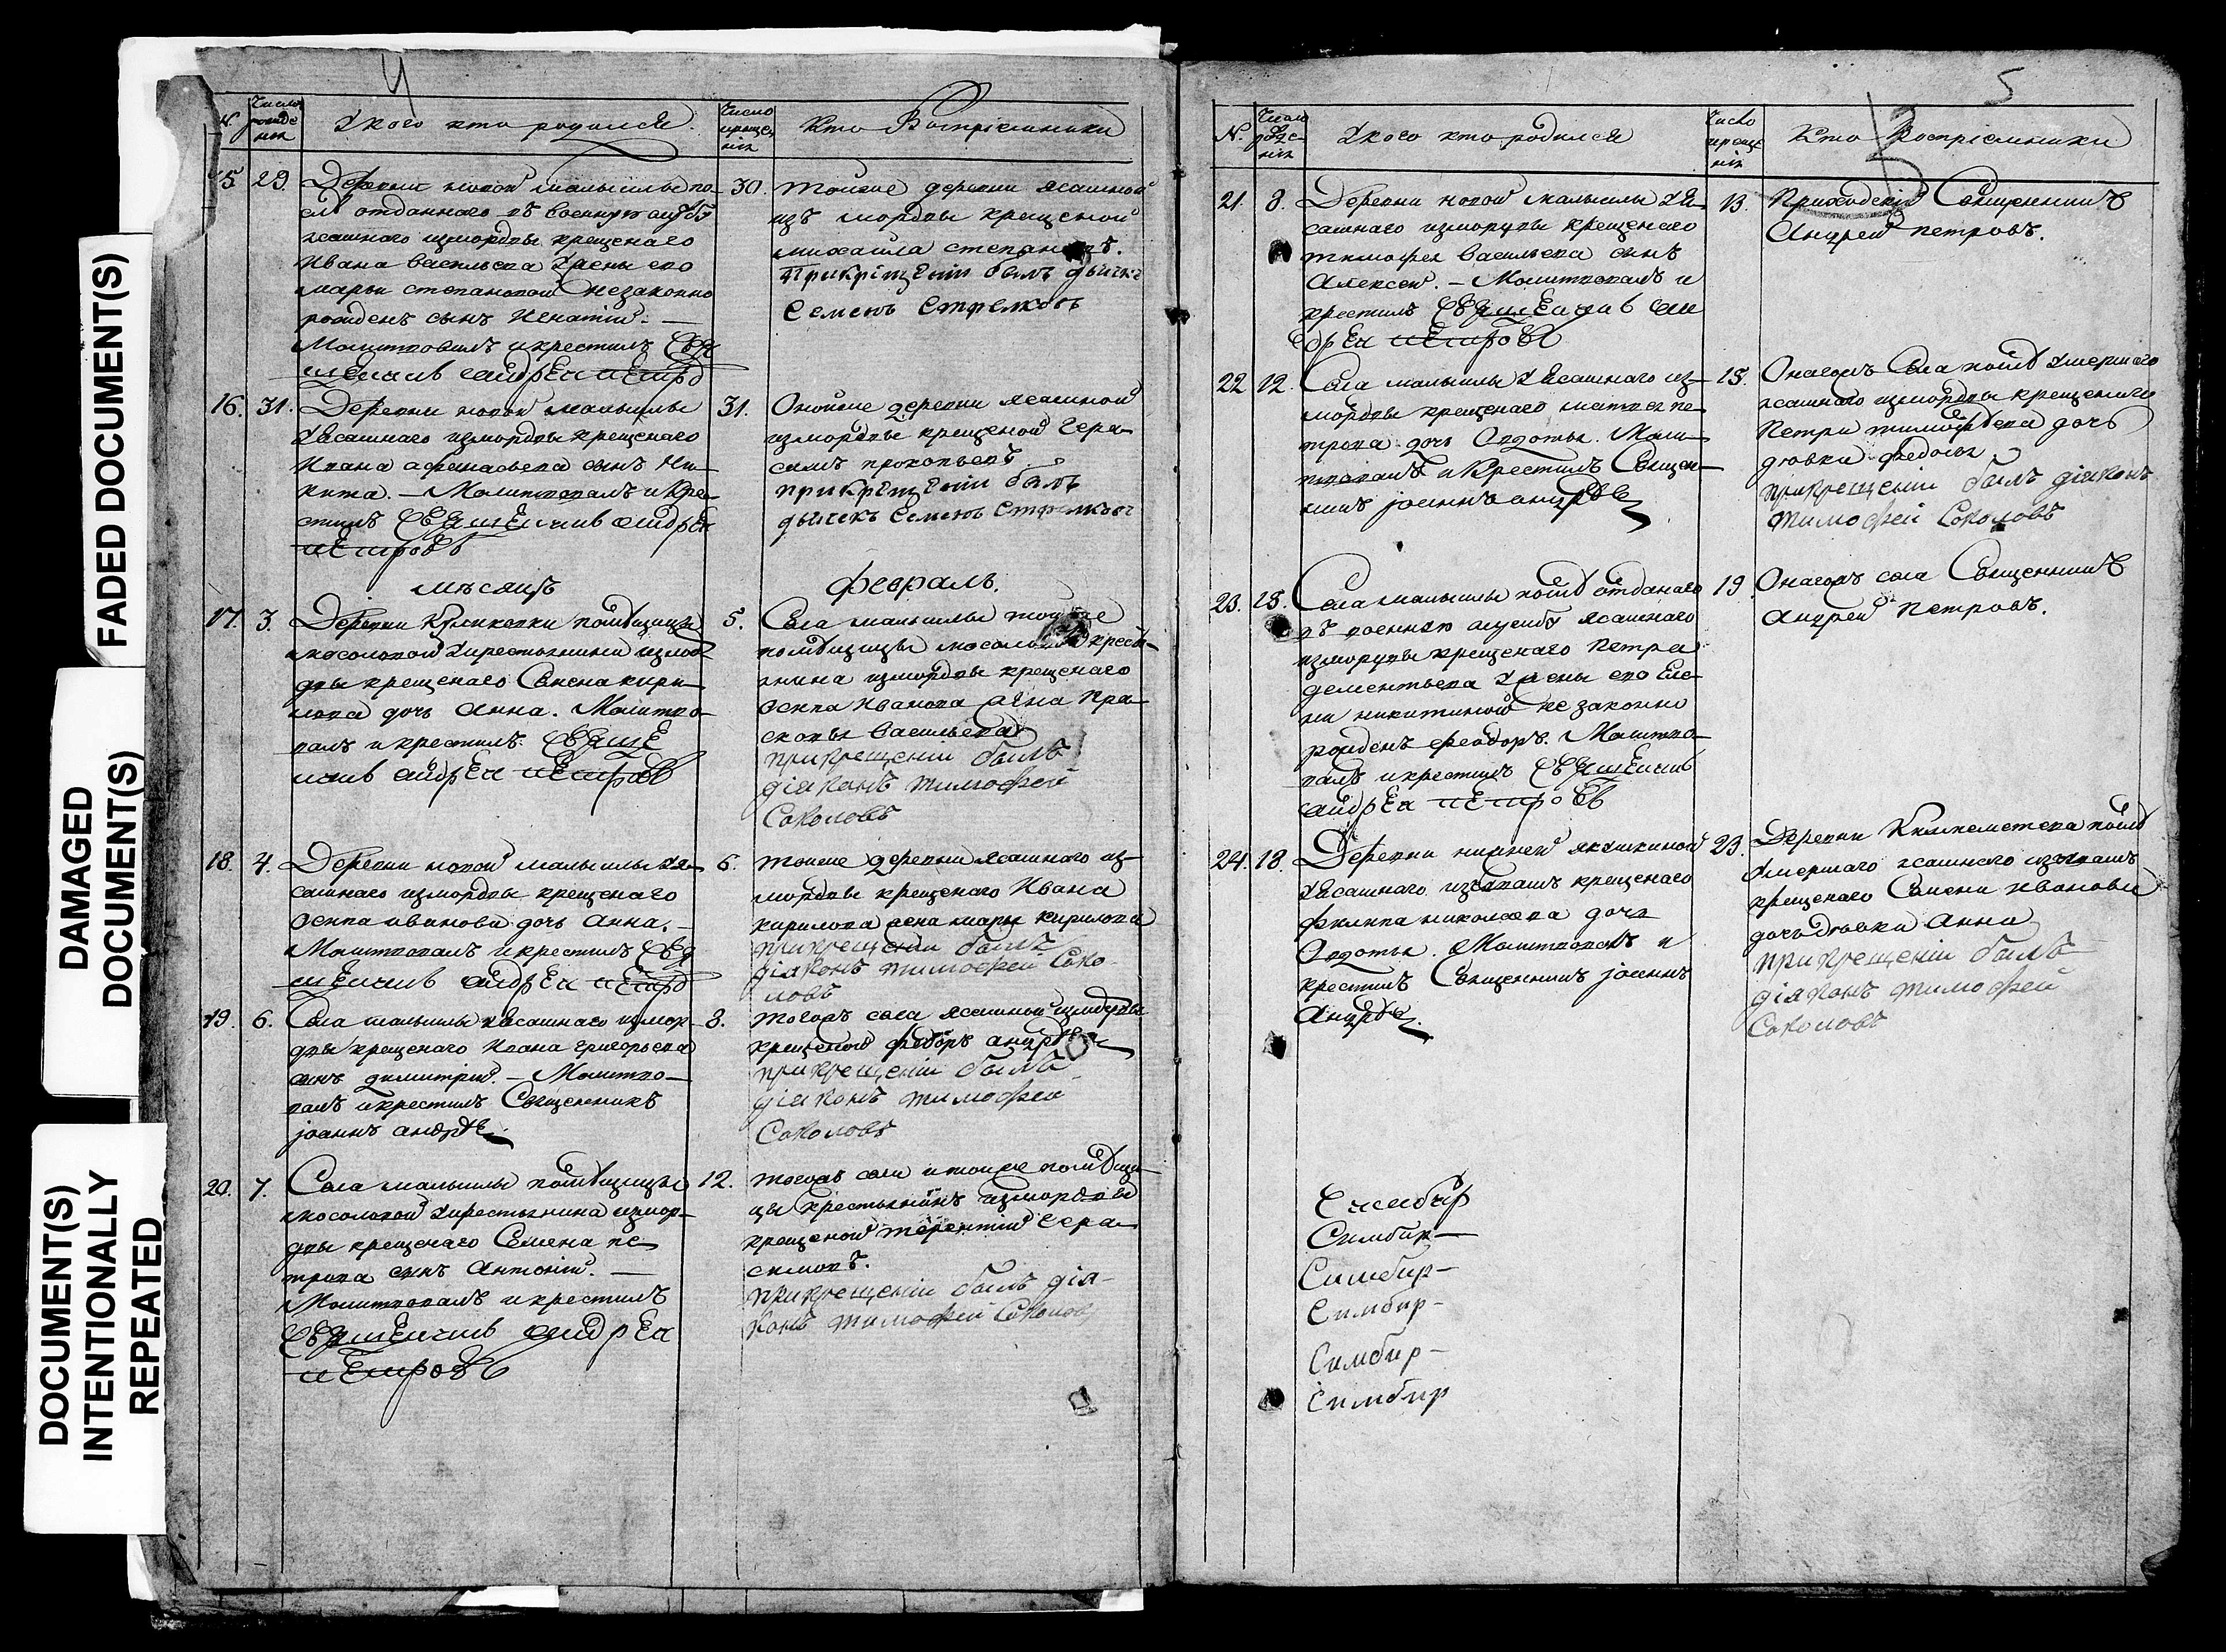 FADED DOCUMENT(S)
DAMAGED
DOCUMENT(S)
DOCUMENT(S)
INTENTIONALLY
REPEATED
4
N.
Число
рожде
нія
У кого кто родился.
Число
креще
нія
Кто Воспріемники
15
29.
Деревни новой малыклы по
слѣ отданнаго въ военную службу
ясашнаго измордвы крещенаго
Ивана Васильева Ужены его
марьи степановой незаконно
рожденъ сынъ Игнатій. —
Молитвовалъ и крестилъ Свя
щенникъ андреи петровъ
30.
тойже деревни ясашной
изъ мордвы крещеной
михайла степановъ.
При крещеніи былъ дьячекъ
Семенъ Стрелковъ
16.
31.
Деревни новой малыклы
Уясашнаго измордвы крещенаго
Ивана афанасьева сынъ Ни-
кита. — Молитвовалъ и кре-
стилъ Священникъ андреи
петровъ
31.
Онойже деревни ясашной
измордвы крещеной Гера-
симъ прокопьевъ
при крещеніи былъ
дьячекъ Семенъ Стрелковъ
мѣсяцъ
февраль.
17.
3.
Деревни Куликовки помѣщицы
мосоловой Укрестьянина измор
двы крещенаго Семена кири-
лова дочь Анна. Молитво-
валъ и крестилъ Священ
никъ андреи петровъ
5.
Села малыклы тойже
помѣщицы мосоловой кресть-
янина измордвы крещенаго
Осипа Иванова жена Пра-
сковья Васильева
при крещеніи былъ
діяконъ тимофей
Соколовъ
18.
4.
Деревни новой малыклы Уя-
сашнаго измордвы крещенаго
Осипа иванова дочь Анна. —
Молитвовалъ и крестилъ Свя
щенникъ андреи петров
6.
тойже деревни ясашнаго из-
мордвы крещенаго Ивана
кирилова жена марья кирилова
при крещеніи былъ
діяконъ тимофей Соко-
ловъ
19.
6.
Села малыклы Уясашнаго измор-
двы крещенаго Ивана григорьева
сынъ димитрий. — Молитво-
валъ и крестилъ Священникъ
јоаннъ андрѣе
8.
тогожъ села ясашной измордвы
крещеной федоръ андрѣев
при крещеніи былъ
діяконъ тимофей
Соколовъ
20.
7.
Села малыклы помѣщицы
мосоловой Укрестьянина измор-
двы крещенаго Семена пе-
трова сынъ Антоній. —
Молитвовалъ и крестилъ
Священникъ андреи
петровъ
12.
тогожъ села и тойже помѣщи-
цы крестьянинъ измордвы
крещеной терентий Гера-
симовъ.
при крещеніи былъ дія-
конъ тимофей Соколовъ
5
N.
Число
рожде-
нія
У кого кто родился
Число
креще
нія
Кто Воспріемники
21.
8.
Деревни новой малыклы Уя-
сашнаго измордвы крещенаго
тимофея васильева сынъ
Алексей. — Молитвовалъ и
крестилъ Священникъ ан
дреи петровъ
13.
Приходский Священникъ
Андрей петровъ.
22
12.
Села малыклы Уясашнаго из-
мордвы крещенаго матвея пе-
трова дочь Овдотья. Моли-
твовалъ и Крестилъ Священ-
никъ јоаннъ андрѣе
15.
Онагожъ Села послѣ Умершаго
ясашнаго измордвы крещенаго
Петра тимофѣева дочь
дѣвка федосья
при крещеніи былъ діяконъ
тимофей Соколовъ
23.
15.
Села малыклы послѣ отданаго
въ военную службу ясашнаго
измордвы крещенаго Петра
дементьева Ужены его Еле-
ны никитиной не законно
рожденъ феодоръ. Молитво-
валъ и крестилъ Священникъ
андреи петровъ
19
Онагожъ села Священникъ
Андрей Петровъ.
24.
18.
Деревни нижней якушкиной
Уясашнаго изчувашъ крещенаго
филипа николаева дочь
Овдотья. Молитвовалъ и
крестилъ Священникъ јоаннъ
Андрѣе
23.
Деревни послѣ
Умершаго ясашнаго изчувашъ
крещенаго Семена Иванова
дочь дѣвка Анна
при крещеніи былъ
діяконъ тимофей
Соколовъ
Симбир
Симбир—
Симбир—
Симбир—
Симбир—
Симбир